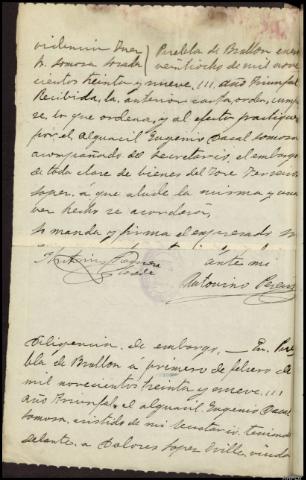 Puebla de Brollon enero
veintiocho de mil nove
cientos treinta y nueve. III año Triunfal
Recibida, la anterior carta, orden, cumpla
se lo que ordena, y al efecto practiquese
por el alguacil Eugenio Casal Somosa
acompañado del Secretario, el embargo
de toda clase de bienes del José
Lopez, á que alude la misma y una
vez hecho se acordará,
Lo manda y firma el expresado
ante mi
Diligencia de embargo, — En Pue
bla de Brollon a primero de febrero de
mil novecientos treinta y nueve. III
año Triunfal, el alguacil Eugenio Casal
Somosa, asistido de mi Secretario, teniendo
delante, a Dolores Lopez viuda